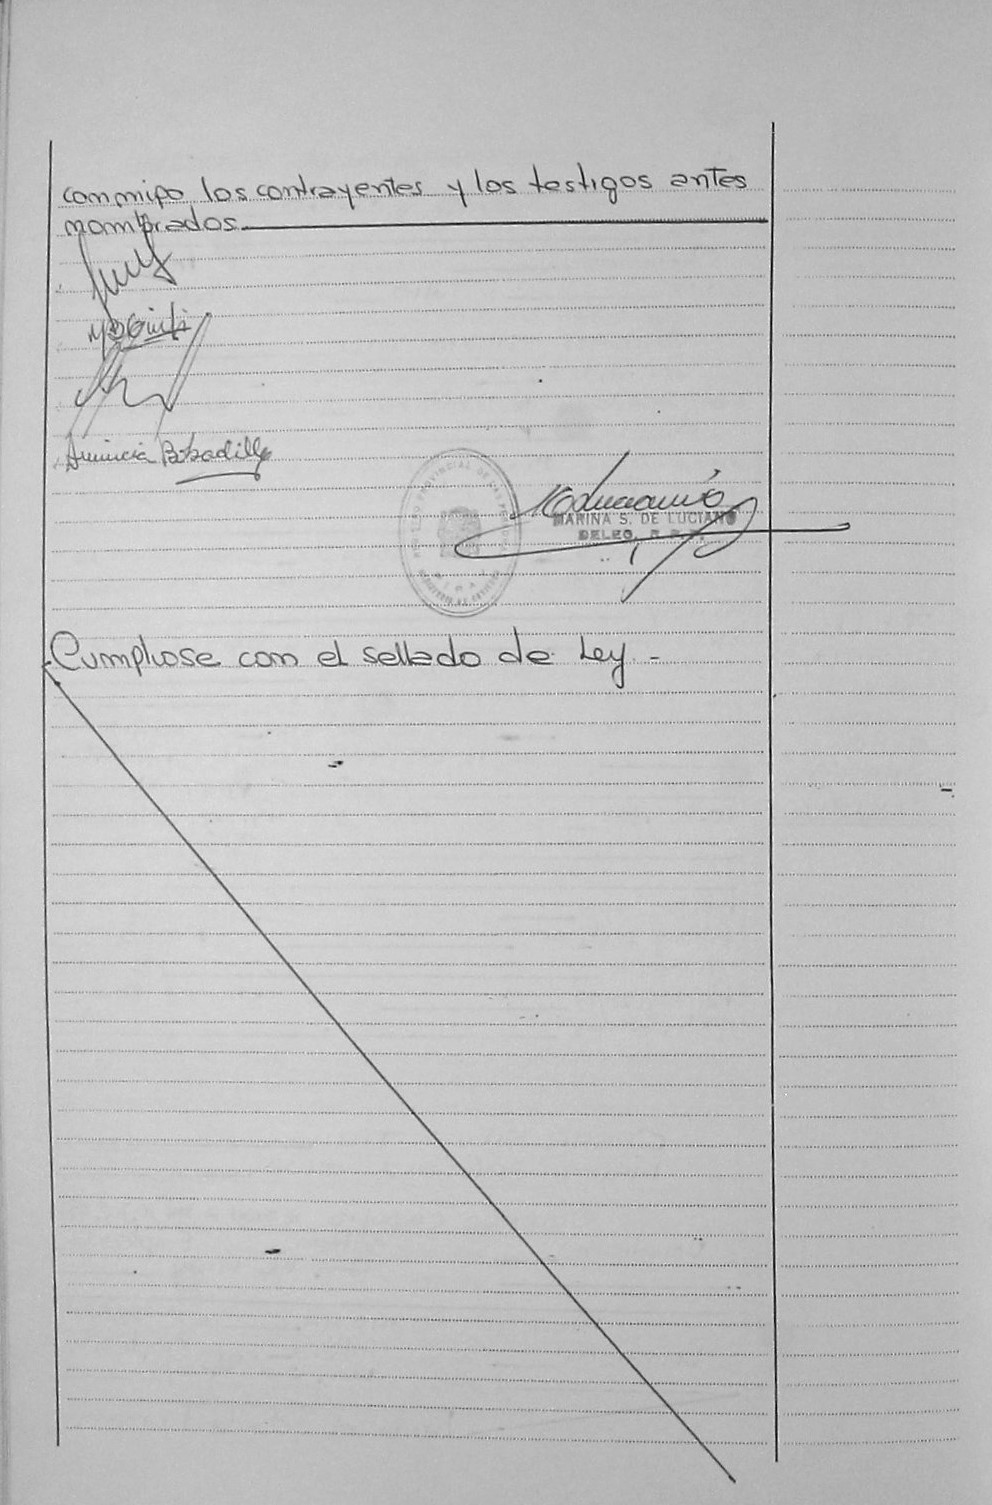 conmigo los contrayentes y los testigos antes
nombrados.
Bobadilla
MARINA S. DE LUCIANO
DELEG.
Cumpliose con el sellado de Ley.-